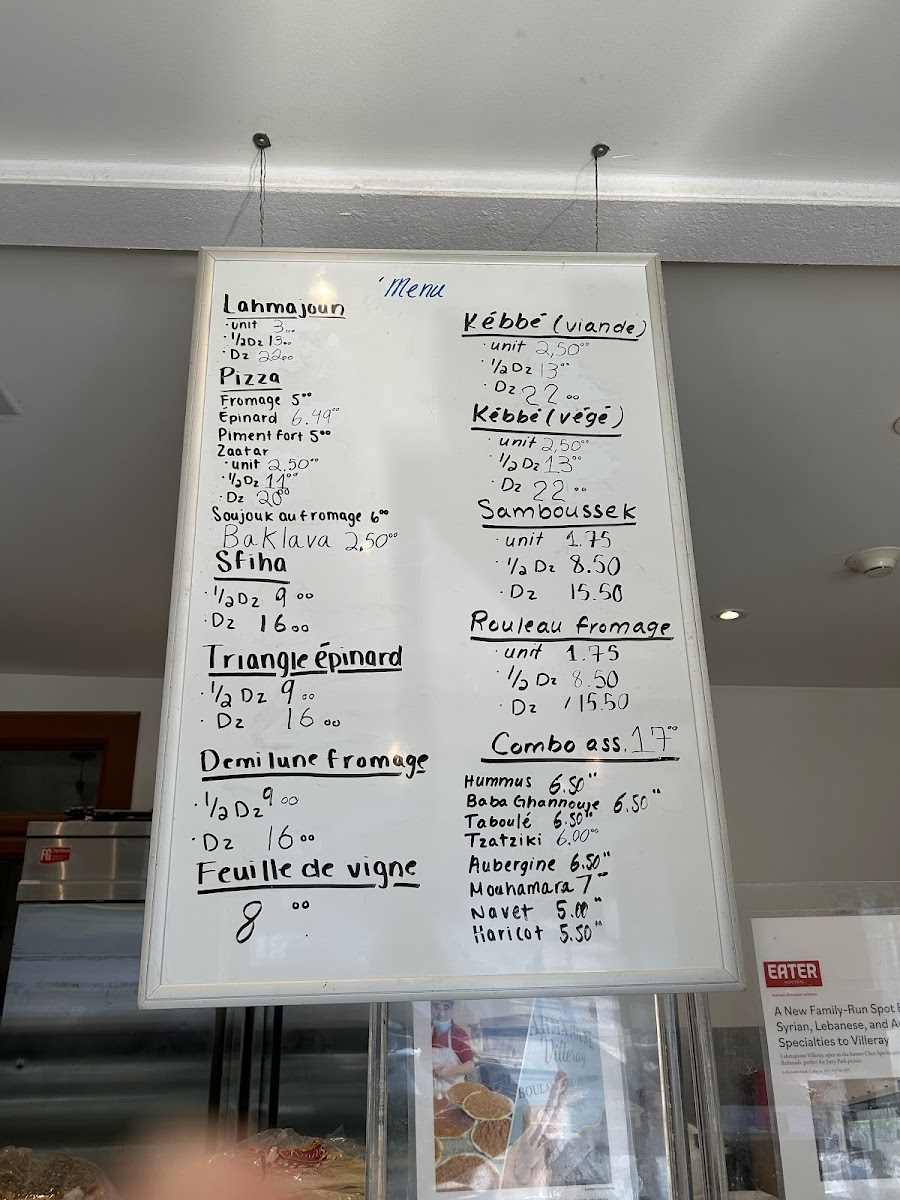 Menu
Lahmajoun
· unit 3.00
· 1/2 Dz 13.00
· Dz 22.00
Pizza
Fromage 5.00
Épinard 6.49
Piment fort 5.00
Zaatar
· unit 2.50
· 1/2 Dz 11.00
· Dz 20.00
Soujouk au fromage 6.00
Baklava 2,50
Sfiha
· 1/2 Dz 9.00
· Dz 16.00
Triangle épinard
· 1/2 Dz 9.00
· Dz 16.00
Demi lune fromage
· 1/2 Dz 9.00
· Dz 16.00
Feuille de vigne
8.00
Kébbé (viande)
· unit 2,50
· 1/2 Dz 13.00
· Dz 22.00
Kébbé (végé)
· unit 2,50
· 1/2 Dz 13.00
· Dz 22.00
Samboussek
· unit 1.75
· 1/2 Dz 8.50
· Dz 15.50
Rouleau fromage
· unit 1.75
· 1/2 Dz 8.50
· Dz 15.50
Combo ass. 17.00
Hummus 6.50
Baba Ghannouje 6.50
Taboulé 6.50
Tzatziki 6.00
Aubergine 6.50
Mouhamara 7
Navet 5.00
Haricot 5.50
FG
EATER
A New Family-Run Spot
Syrian, Lebanese, and
Specialties to Villeray
Villeray